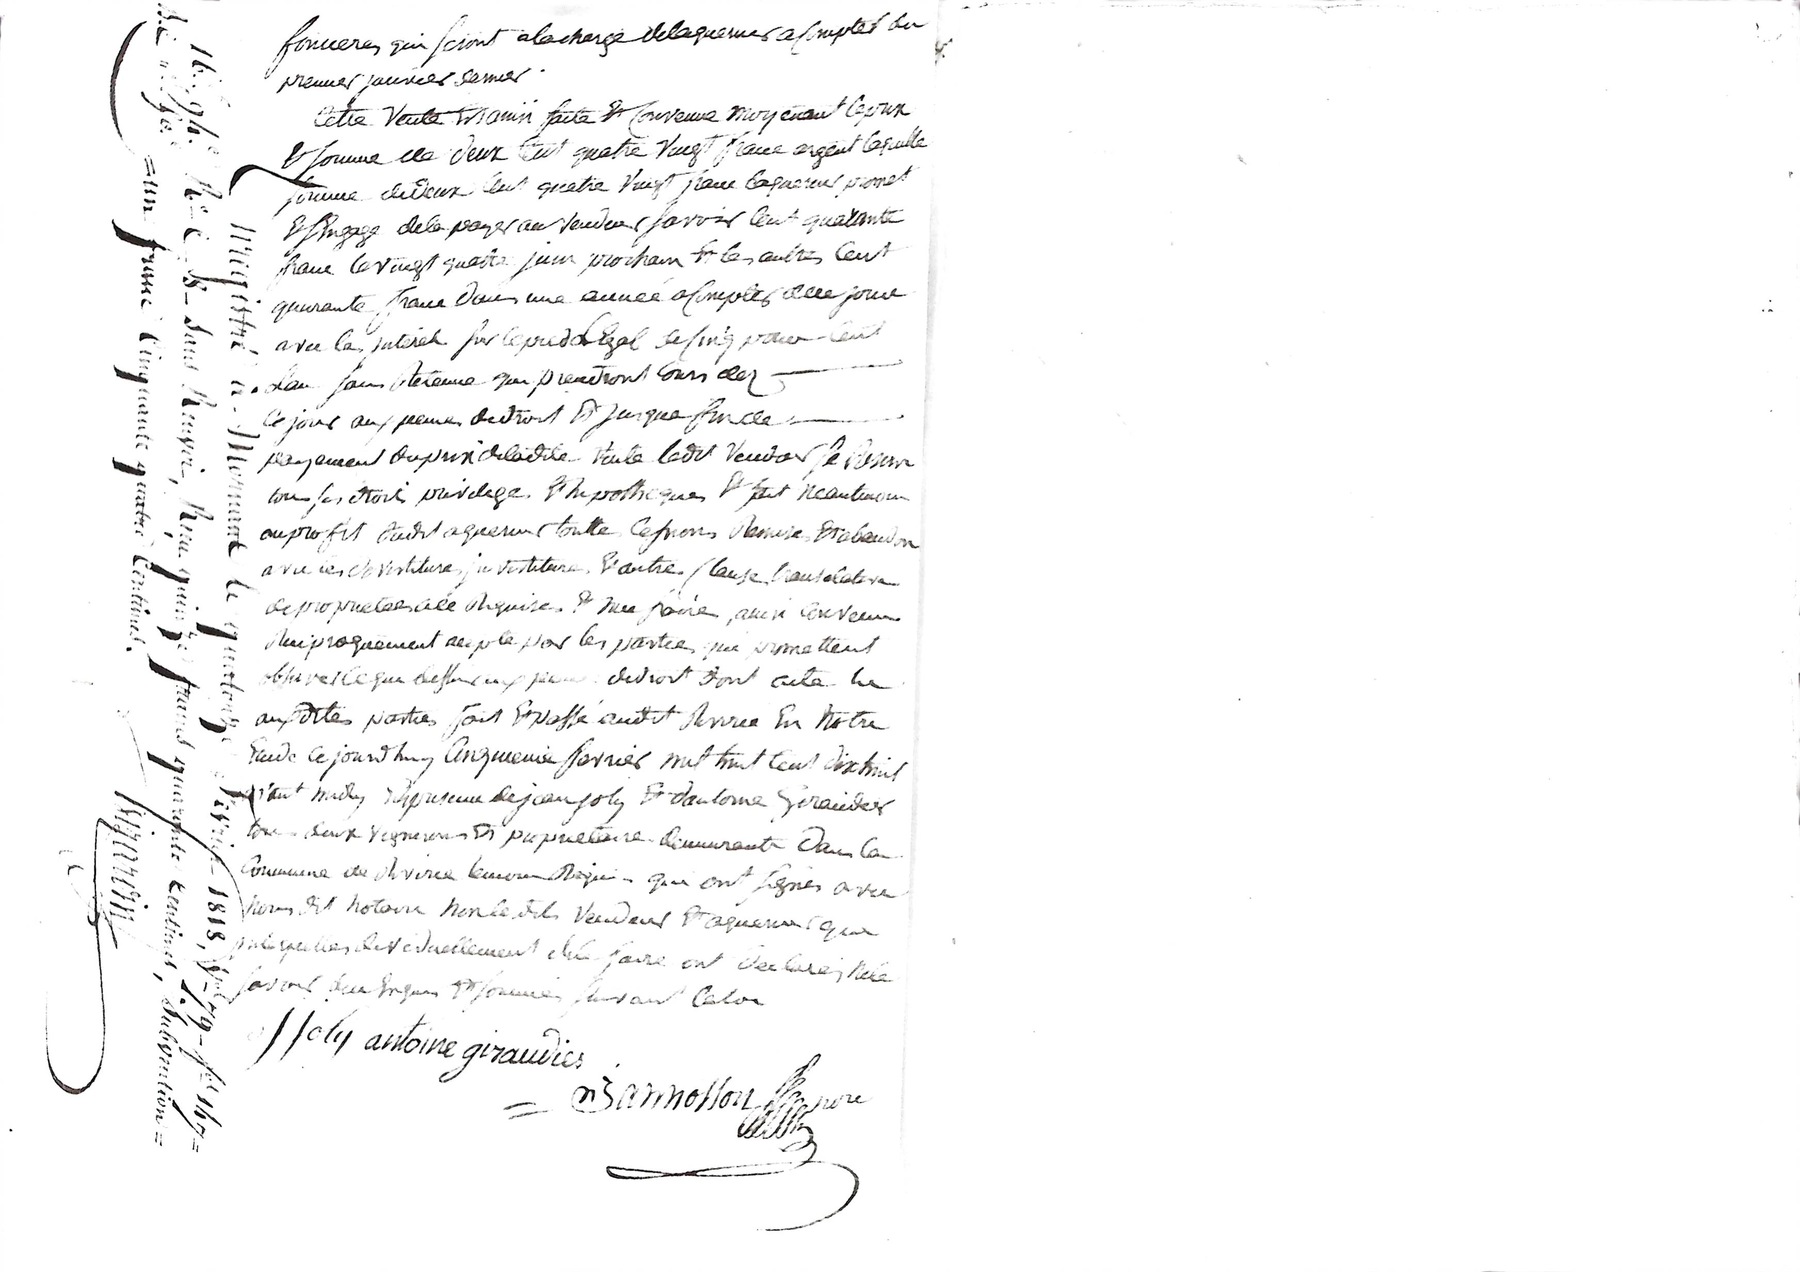 foncieres qui seront alacharge delaquereur acompter du
premier janvier dernier.
Cette Vente Est ainsi faite Et Convenue moyenant leprix
Et somme de deux Cent quatre Vingt franc argent laquelle
somme dedeux Cent quatre Vingt franc laquereur promet
Et sEngage dela payer au vendeur savoir Cent quarante
franc levingt quatre juin prochain Et les autres Cent
quarante franc dans une année acompter dece jour
avec les interets sur lepied Légal de Cinq pour Cent
lan sans Retenue qui prendront Cours dez
Ce jour aux peines dedroit Et jusque fin de
payement duprix deladite Vente ledit Vendeur se Reserve
tous ses droit privilege Et hypotheques Et fait neantmoin
auprofit dudit aquereur toutte Cessions Remise Et abandon
avec devestiture investiture Et autre Clause translative
de proprietee Requise Et
Reciproquement accepté par les parties qui promettent
observer Ce que dessus aux peines dedroit dont acte lu
auxdittes parties fait Et passé audit En Notre
Etude Ce jourdhuy Cinquieme fevrier mil huit Cent dix huit
avant midy En presence de jean joly Et dantoine Giraudier
tous deux vignerons Et proprietaire demeurants dans la
Commune de temoin Requis qui ont signés avec
Nous dit Notaire Non lesdits Vendeur Et aquereur qui
individuellement de le faire ont declarés Ne le
savoir de ce Enquis Et sommés suivant La loi
Joly antoine giraudier
Bannosson Nore
Enregistré à Mornant le quatorze février 1818, vol. 49, fo. 167
16. 94. Rc. 8. sans Renvoi, Reçu quinze francs quarante centimes, Subvention =
= un franc Cinquante quatre Centimes.